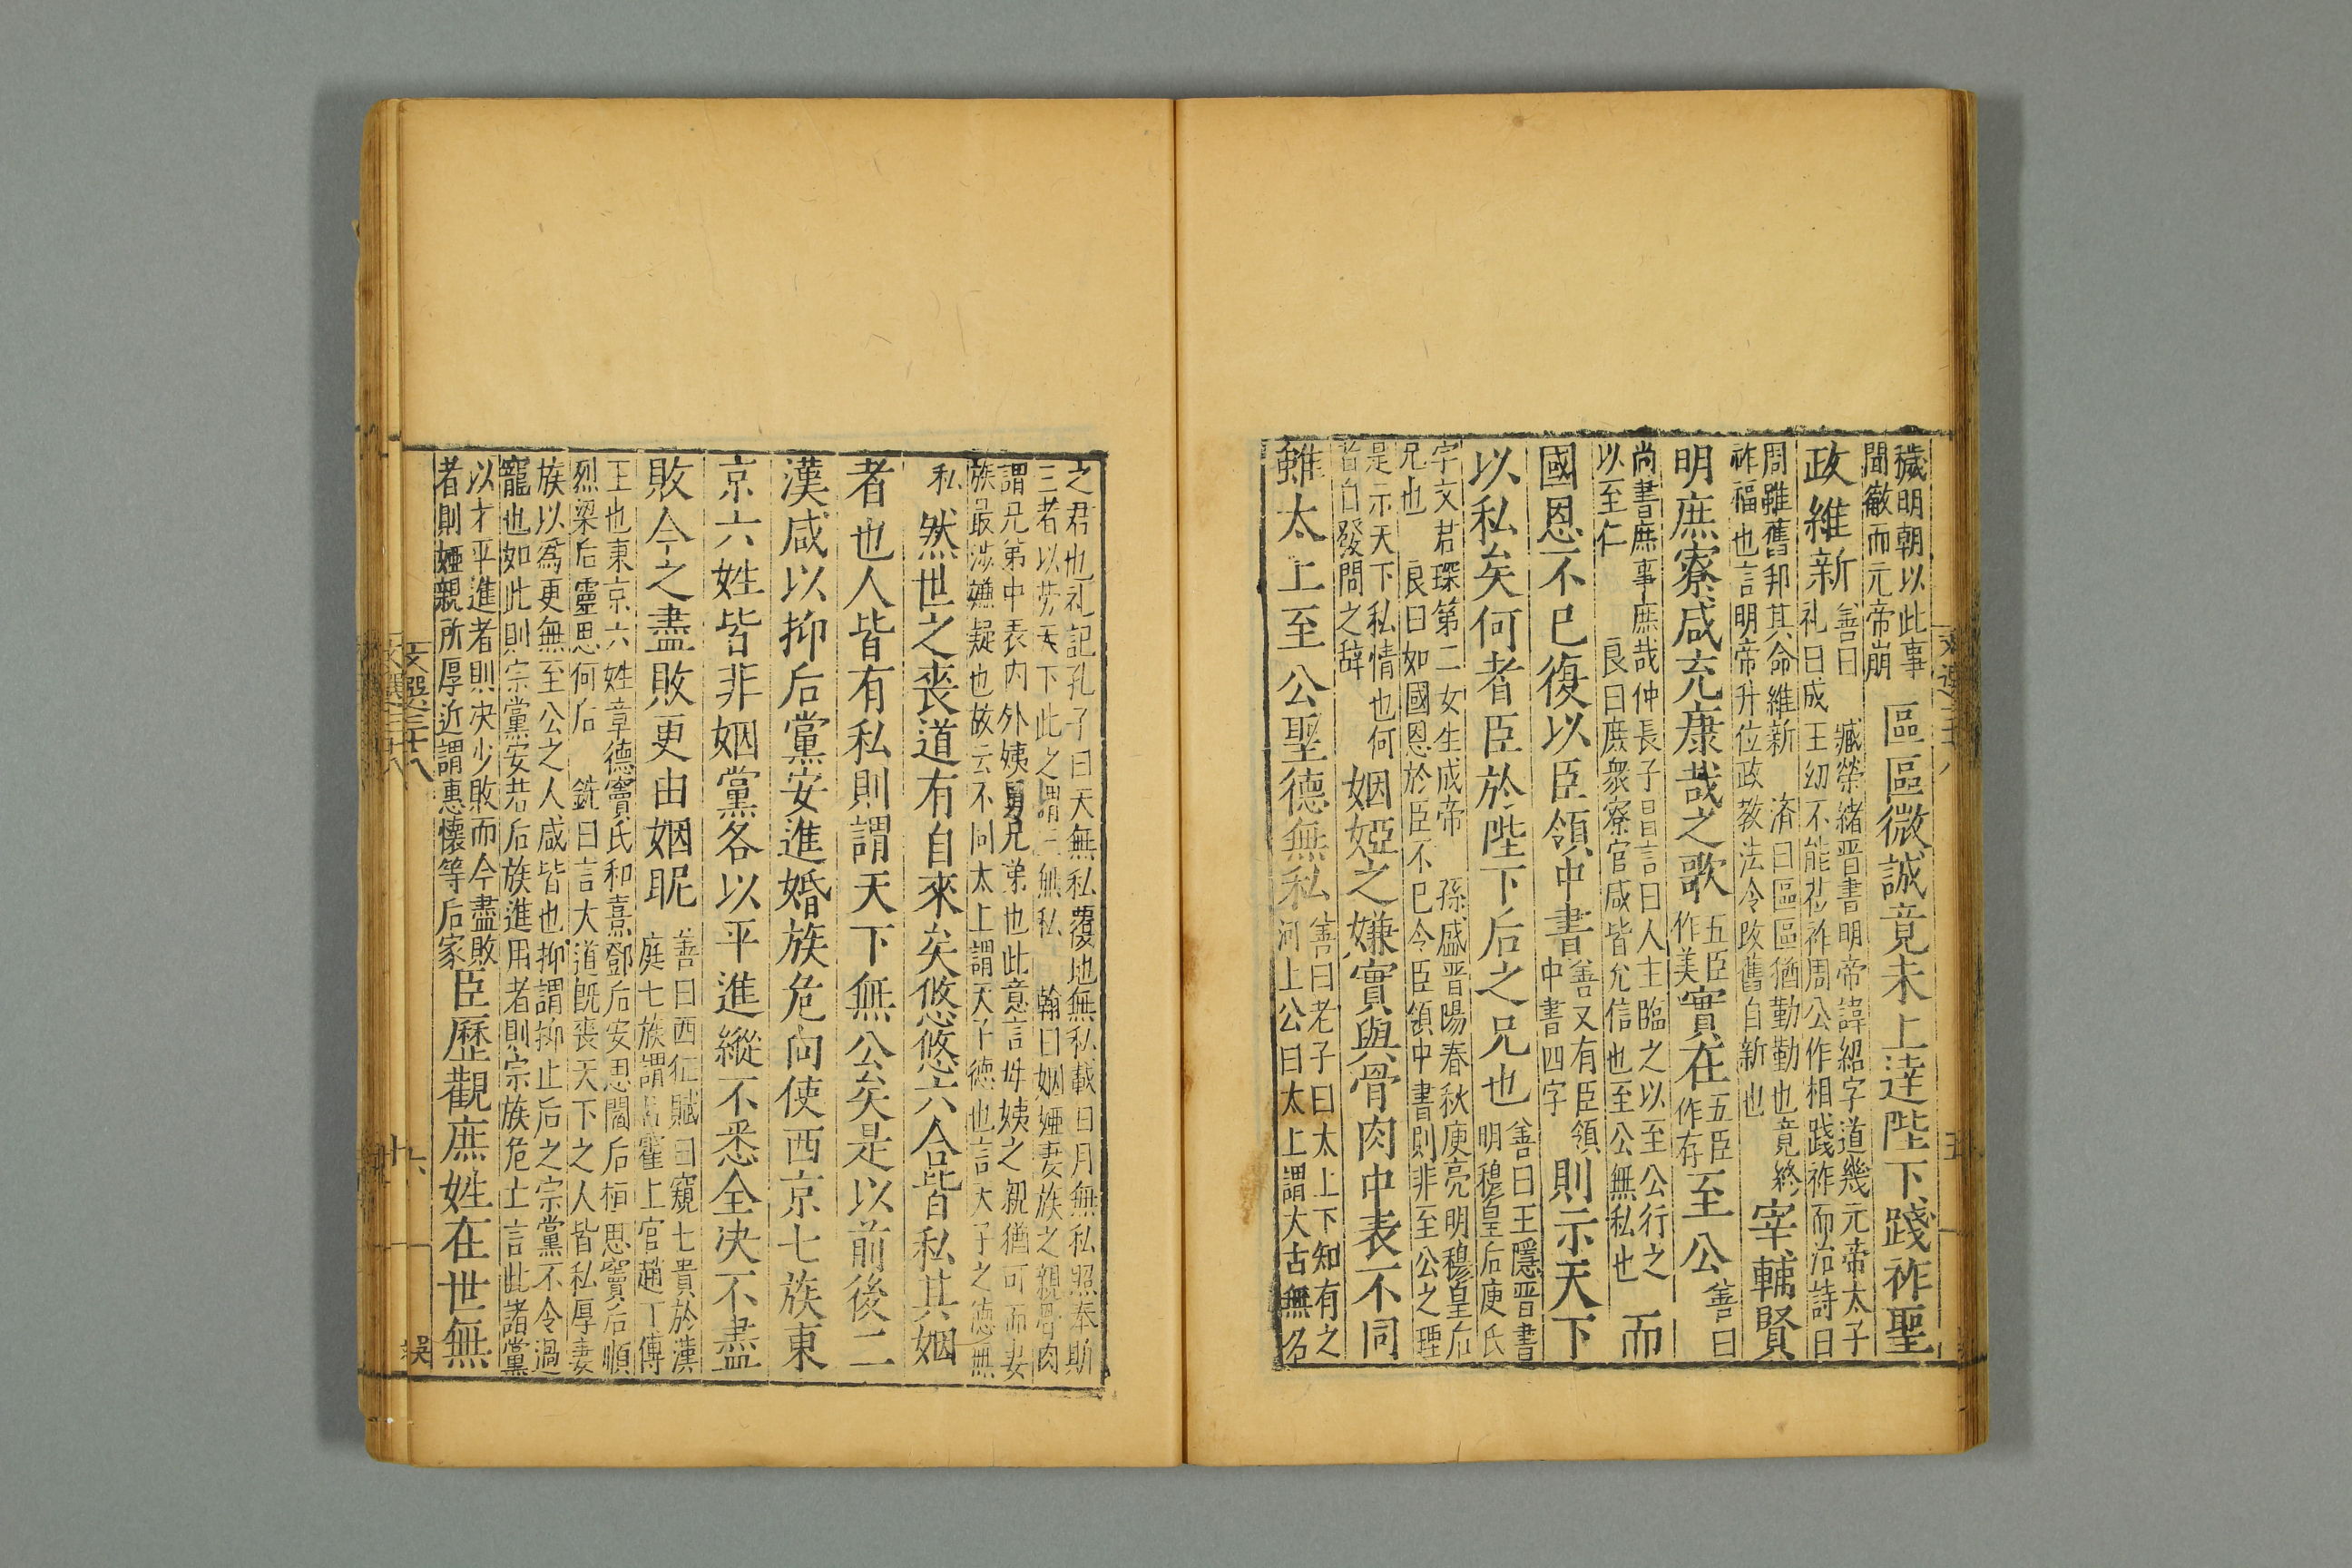 穢明朝以此事
聞徹而元帝崩
區區微誠竟未上達陛下踐祚聖
政維新
善曰臧榮緒晉書明帝諱紹字道幾元帝太子
礼曰成王幼不能莅祚周公作相踐祚而治詩曰
周雖舊邦其命維新 濟曰區區猶勤勤也竟終
祚福也言明帝升位政教法令改舊自新也
宰輔賢
明庶寮咸充康哉之歌
五臣
作美
實在
五臣
作存
至公
善曰
尚書庶事庶哉仲長子昌言曰人主臨之以至公行之
以至仁 良曰庶衆寮官咸皆允信也至公無私也
而
國恩不已復以臣領中書
善又有臣領
中書四字
則示天下
以私矣何者臣於陛下后之兄也
善曰王隱晉書
明穆皇后庾氏
字文君琛第二女生成帝 孫盛晉陽春秋庾亮明穆皇后
兄也 良曰如國恩於臣不已令臣領中書則非至公之理
是示天下私情也何
者自發問之辞
姻婭之嫌實與骨肉中表不同
雖太上至公聖德無私
善曰老子曰太上下知有之
河上公曰太上謂大古無名
之君也礼記孔子曰天無私覆地無私載日月無私照奉斯
三者以劳天下此之謂三無私 翰曰姻婭妻族之親骨肉
謂兄弟中表内外姨舅兄弟也此意言母姨之親猶可而妻
族最涉嫌疑也故云不同太上謂天子德也言天子之德無
私
然世之喪道有自來矣悠悠六合皆私其姻
者也人皆有私則謂天下無公矣是以前後二
漢咸以抑后黨安進婚族危向使西京七族東
京六姓皆非姻黨各以平進縱不悉全决不盡
敗今之盡敗更由姻昵
善曰西征賦曰窺七貴於漢
庭七族謂吕霍上官趙丁傳
王也東京六姓章德竇氏和熹鄧后安思閻后桓思竇后順
烈梁后靈思何后 銑曰言大道旣喪天下之人皆私厚妻
族以爲更無至公之人咸皆也抑謂抑止后之宗黨不令過
寵也如此則宗黨安若后族進用者則宗族危士言此諸黨
以才平進者則决少敗而今盡敗
者則婭親所厚近謂惠懷等后家
臣歷觀庶姓在世無
文選三十八
十六